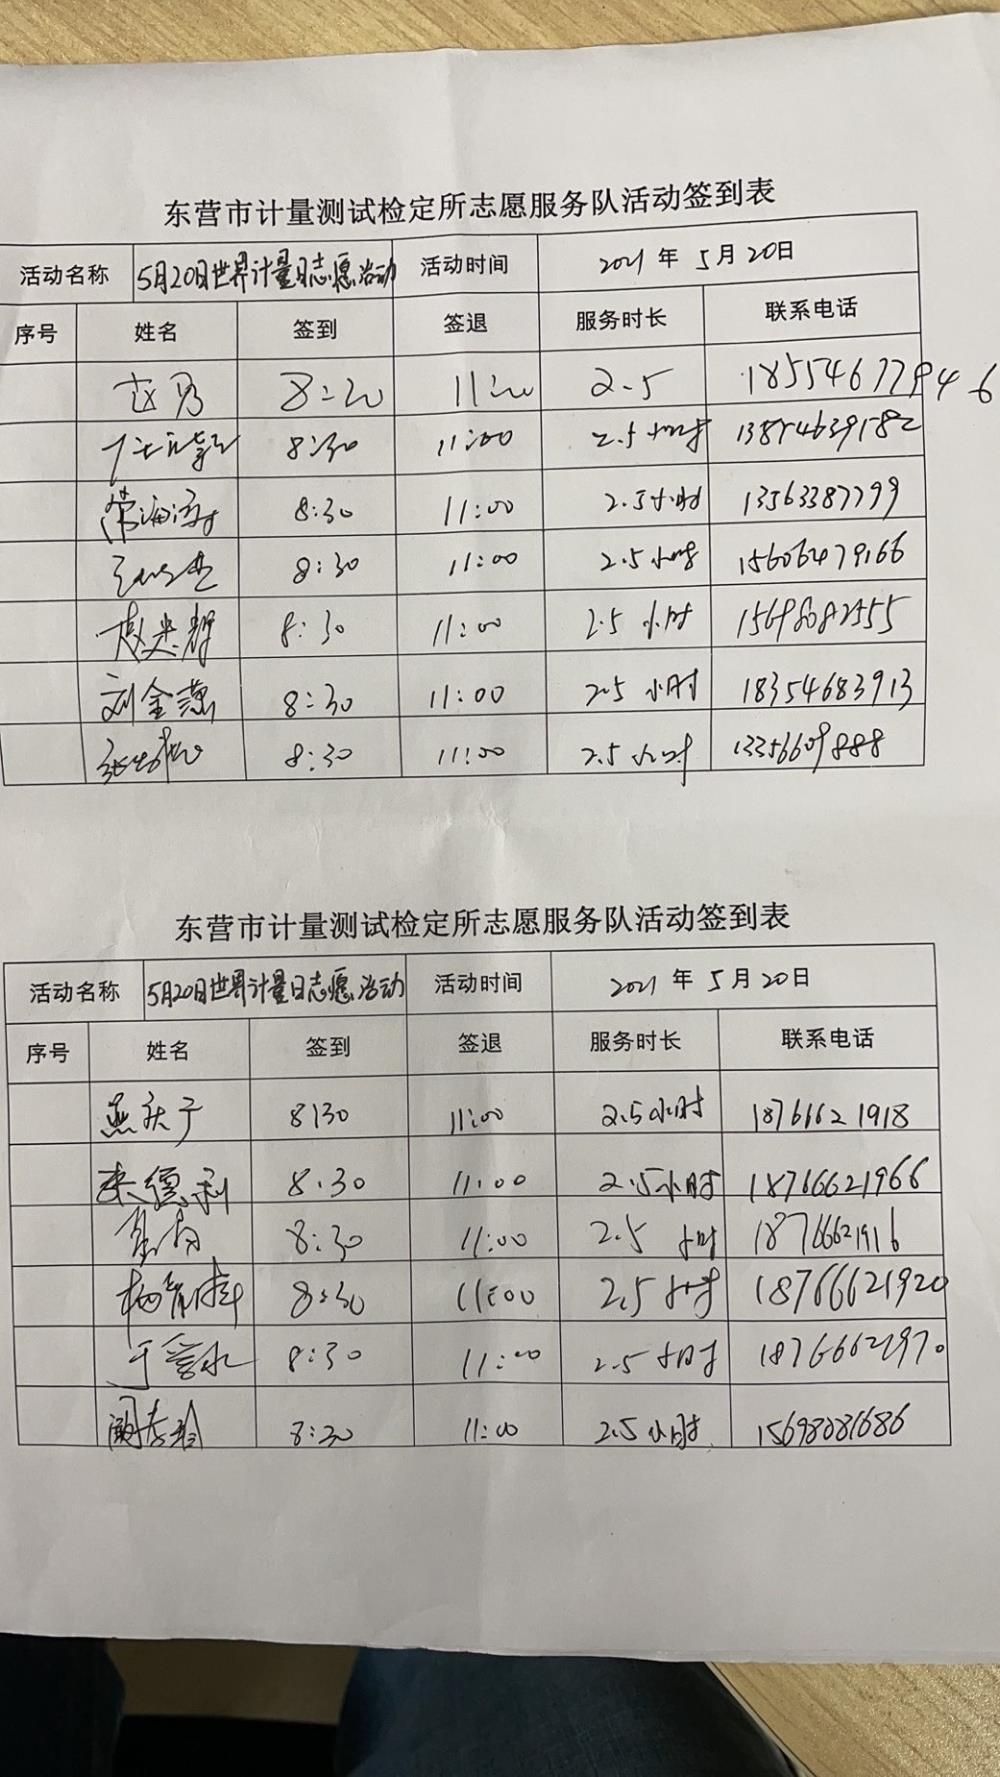 东营市计量测试检定所志愿服务队活动签到表
活动名称 5月20日世界计量日志愿活动 活动时间 2021年5月20日
序号 姓名 签到 签退 服务时长 联系电话
8:20 11:00 2.5 18554677946
8:30 11:00 2.5小时
常海涛 8:30 11:00 2.5小时 13563387799
8:30 11:00 2.5小时 15606479166
赵英群 8:30 11:00 2.5小时
刘金燕 8:30 11:00 2.5小时 18354683913
8:30 11:00 2.5小时 13356609888
东营市计量测试检定所志愿服务队活动签到表
活动名称 5月20日世界计量日志愿活动 活动时间 2021年5月20日
序号 姓名 签到 签退 服务时长 联系电话
燕庆于 8:30 11:00 2.5小时
来德利 8:30 11:00 2.5小时 18766621966
8:30 11:00 2.5小时 18766621916
8:30 11:00 2.5小时 18766621920
于爱水 8:30 11:00 2.5小时 18766621970
8:30 11:00 2.5小时 15698081686